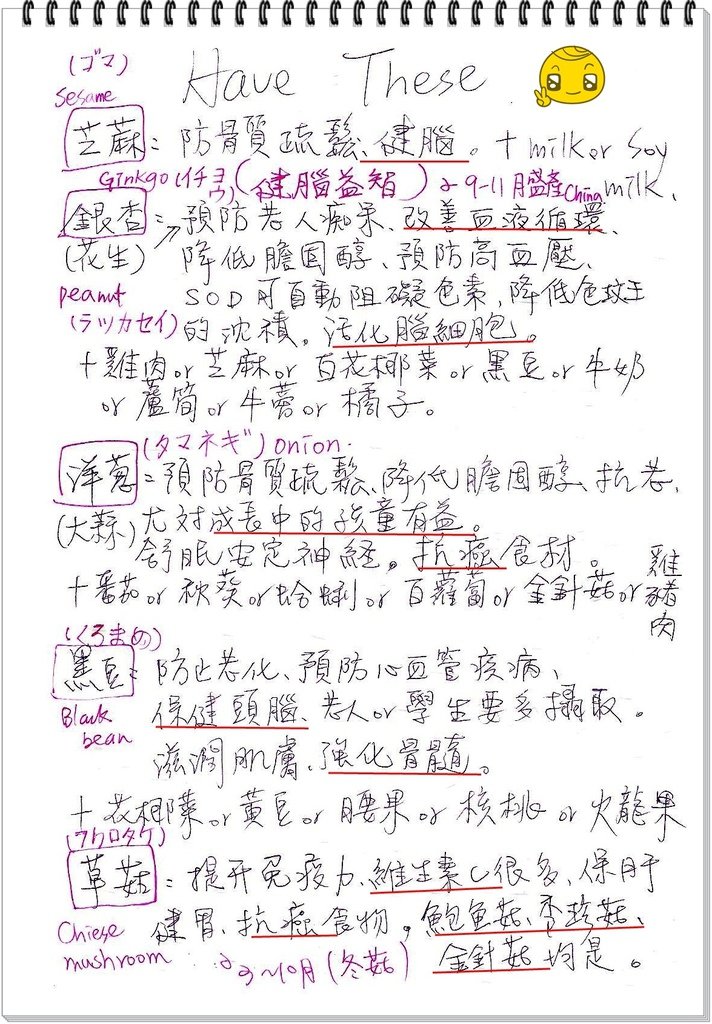 (ゴマ)
Have These
Sesame
芝麻= 防骨質疏鬆、健腦。+ milk or Soy
Ginkgo (イチョウ) (健腦益智) 9-11月盛產 China milk、
銀杏= 預防老人痴呆、改善血液循環、
(花生) 降低膽固醇、預防高血壓、
peanut SOD可自動阻礙色素,降低色
(ラッカセイ) 的沈積,活化腦細胞。
+雞肉or芝麻or百花椰菜or黑豆or牛奶
or蘆筍or牛蒡or橘子。
(タマネギ) onion.
洋蔥=預防骨質疏鬆、降低膽固醇、抗老、
(大蒜) 尤對成長中的孩童有益。
舒眠安定神經。抗癌食材。
+番茄or秋葵or蛤蜊or百蘿蔔or金針菇or雞豬肉
(くろまめ)
黑豆= 防止老化、預防心血管疾病、
Black bean 保健頭腦、老人or學生要多攝取。
滋潤肌膚、強化骨髓。
+花椰菜or黃豆or腰果or核桃or火龍果
(フクロタケ)
草菇=提升免疫力、維生素C很多、保肝
Chiese 健胃、抗癌食物。鮑魚菇、杏菇、
mushroom 3~10月(冬菇) 金針菇均是。